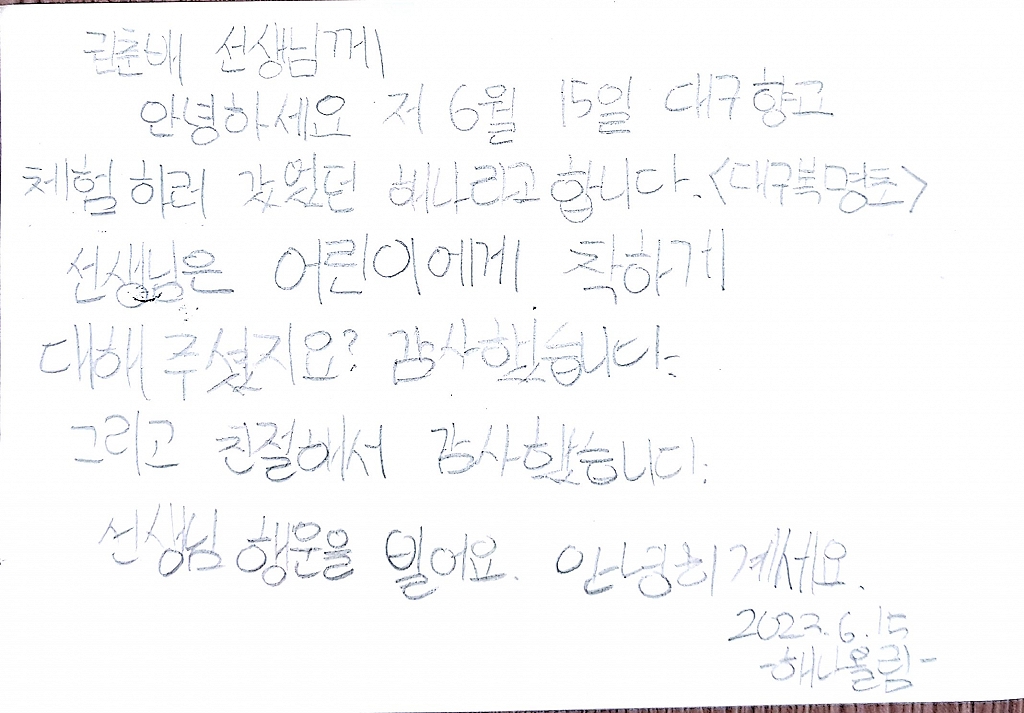 권춘배 선생님께
안녕하세요 저 6월 15일 대구향교
체험하러 갔었던 해나라고합니다.<대구북명초>
선생님은 어린이에게 착하게
대해 주셨지요? 감사했습니다.
그리고 친절해서 감사했습니다.
선생님 행운을 빌어요. 안녕히계세요.
2023.6.15
-해나올림-